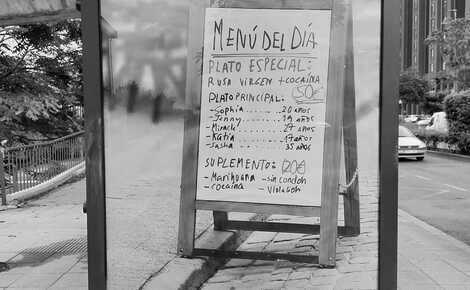 MENÚ DEL DÍA
PLATO ESPECIAL:
RUSA VIRGEN + COCAÍNA
50€
PLATO PRINCIPAL:
- Sophia........ 20 años
- Jenny.......... 19 años
- Miracle........ 27 años
- Katia .......... 17 años
- Sasha 35 años
SUPLEMENTO:
- Marihuana - sin condón
- cocaína - Violación